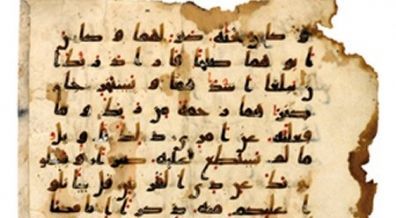 و كان تحته كنز لهما و كان
ابو هما صلحا فاراد ربك ا
ن يبلغا اشد هما و يستخرجا
كنز هما رحمة من ربك و ما
فعلته عن امري ذلك تاويل
ما لم تسطع عليه صبرا و يسلو
نك عن ذي القرنين قل ساتلو
ا عليكم منه ذكرا انا مكنا